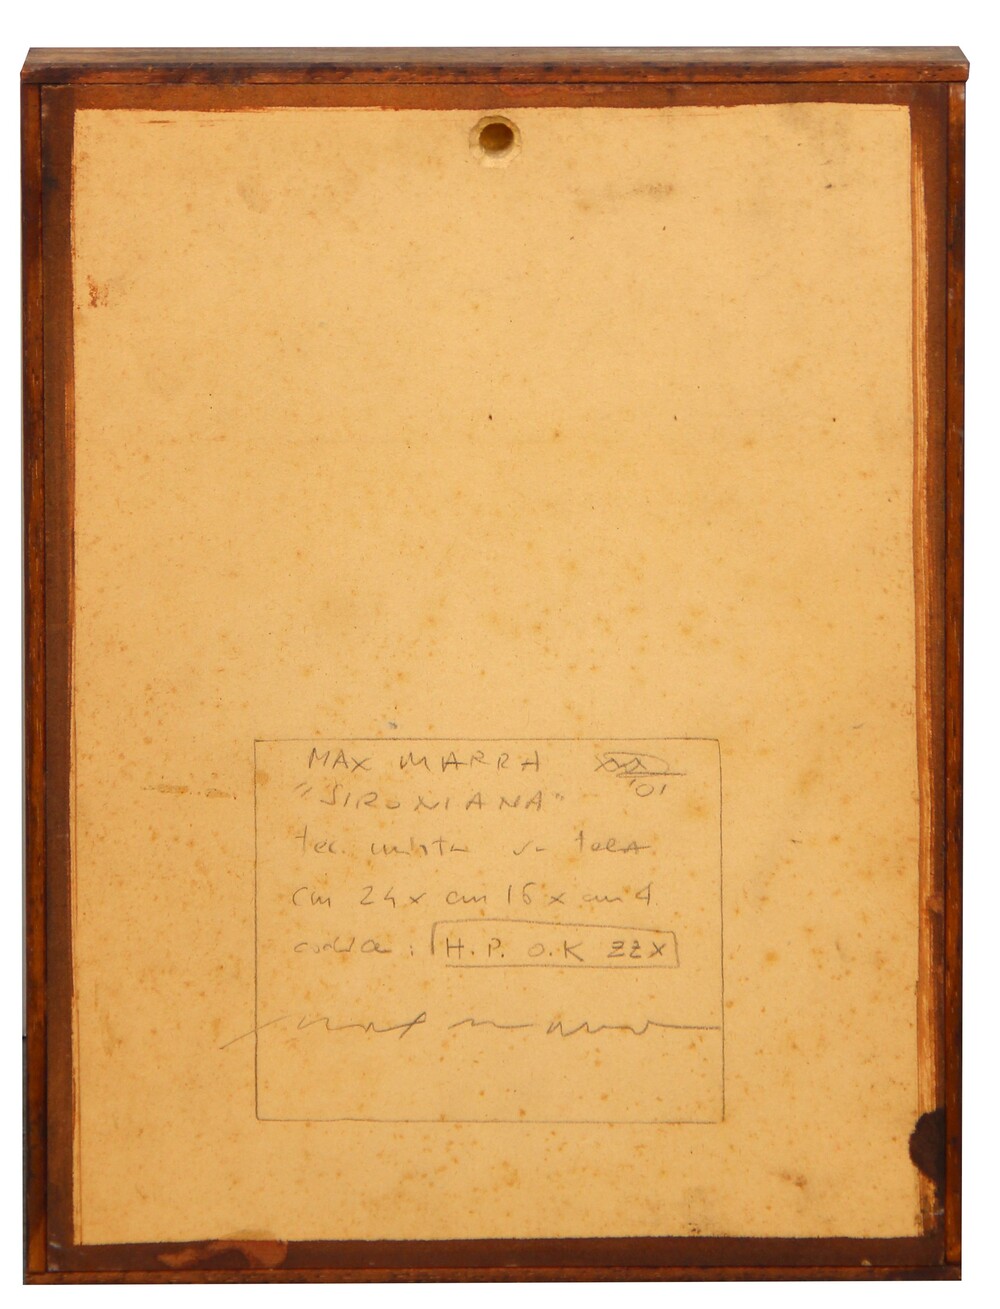 MAX MARRA
'01
"SIRONIANA"
tec. mista su tela
cm 24 x cm 16 x cm 4
codice: H.P. O.K ZZX
Max Marra